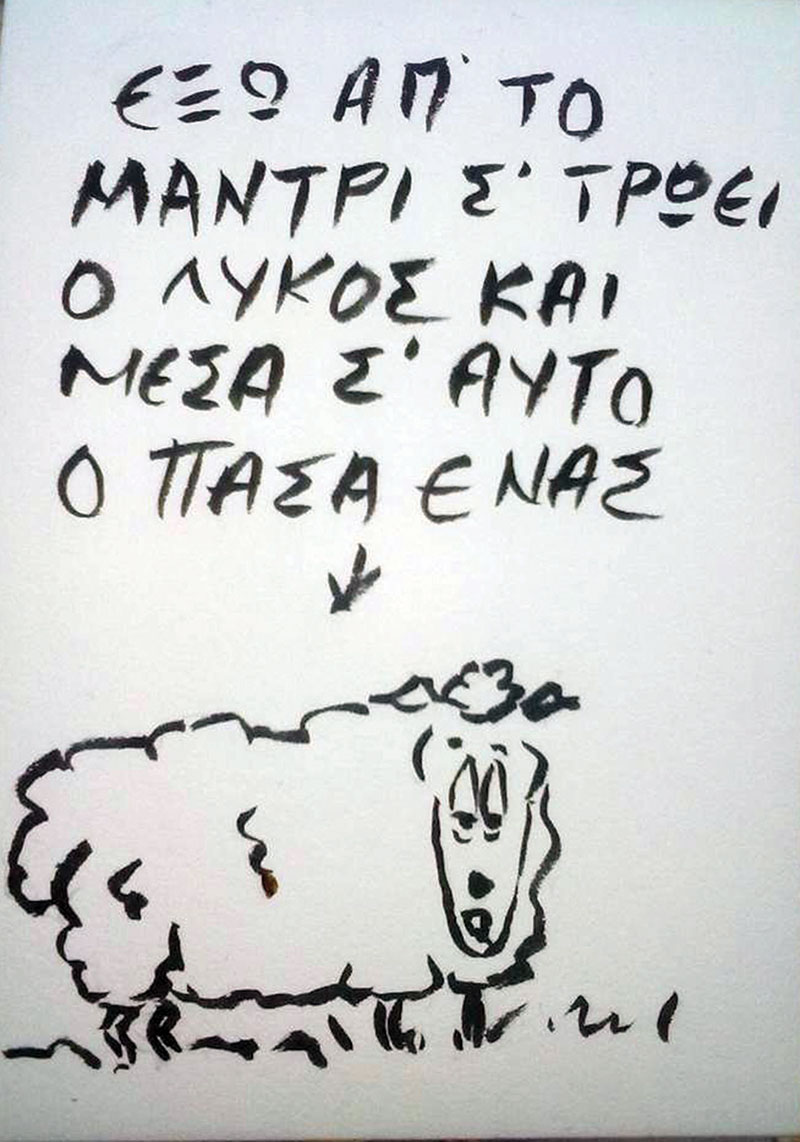 ΕΞΩ ΑΠ' ΤΟ
ΜΑΝΤΡΙ Σ' ΤΡΩΕΙ
Ο ΛΥΚΟΣ ΚΑΙ
ΜΕΣΑ Σ' ΑΥΤΟ
Ο ΠΑΣΑ ΕΝΑΣ